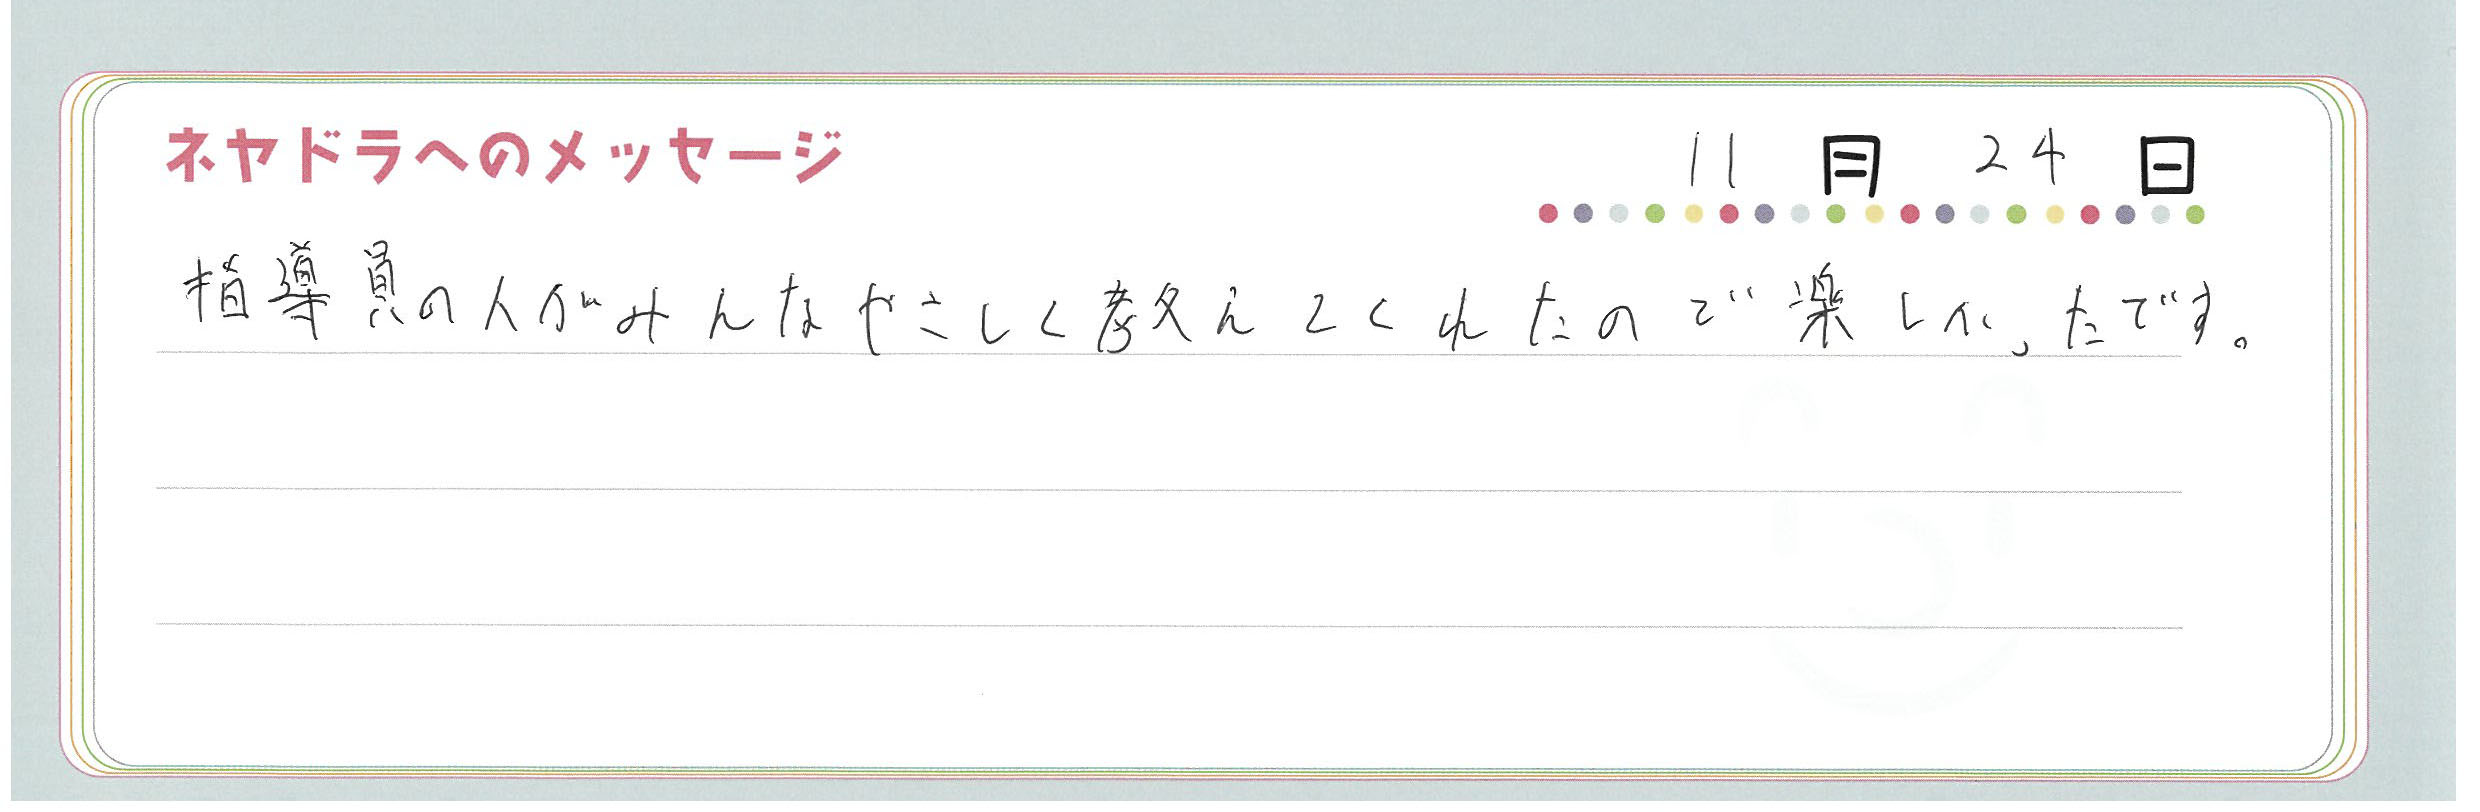 ネヤドラへのメッセージ
11月24日
指導員の人がみんなやさしく教えてくれたので楽しかったです。